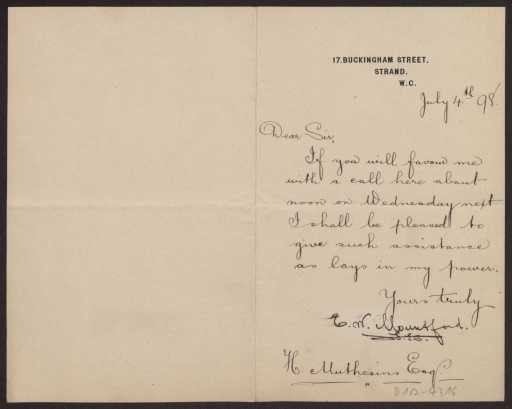 17, BUCKINGHAM STREET,
STRAND,
W.C.
July 4th 98.
Dear Sir,
If you will favour me
with a call here about
noon on Wednesday next
I shall be pleased to
give such assistance
as lays in my power.
Yours truly
E. W. Mountford.
H Muthesius Esqr